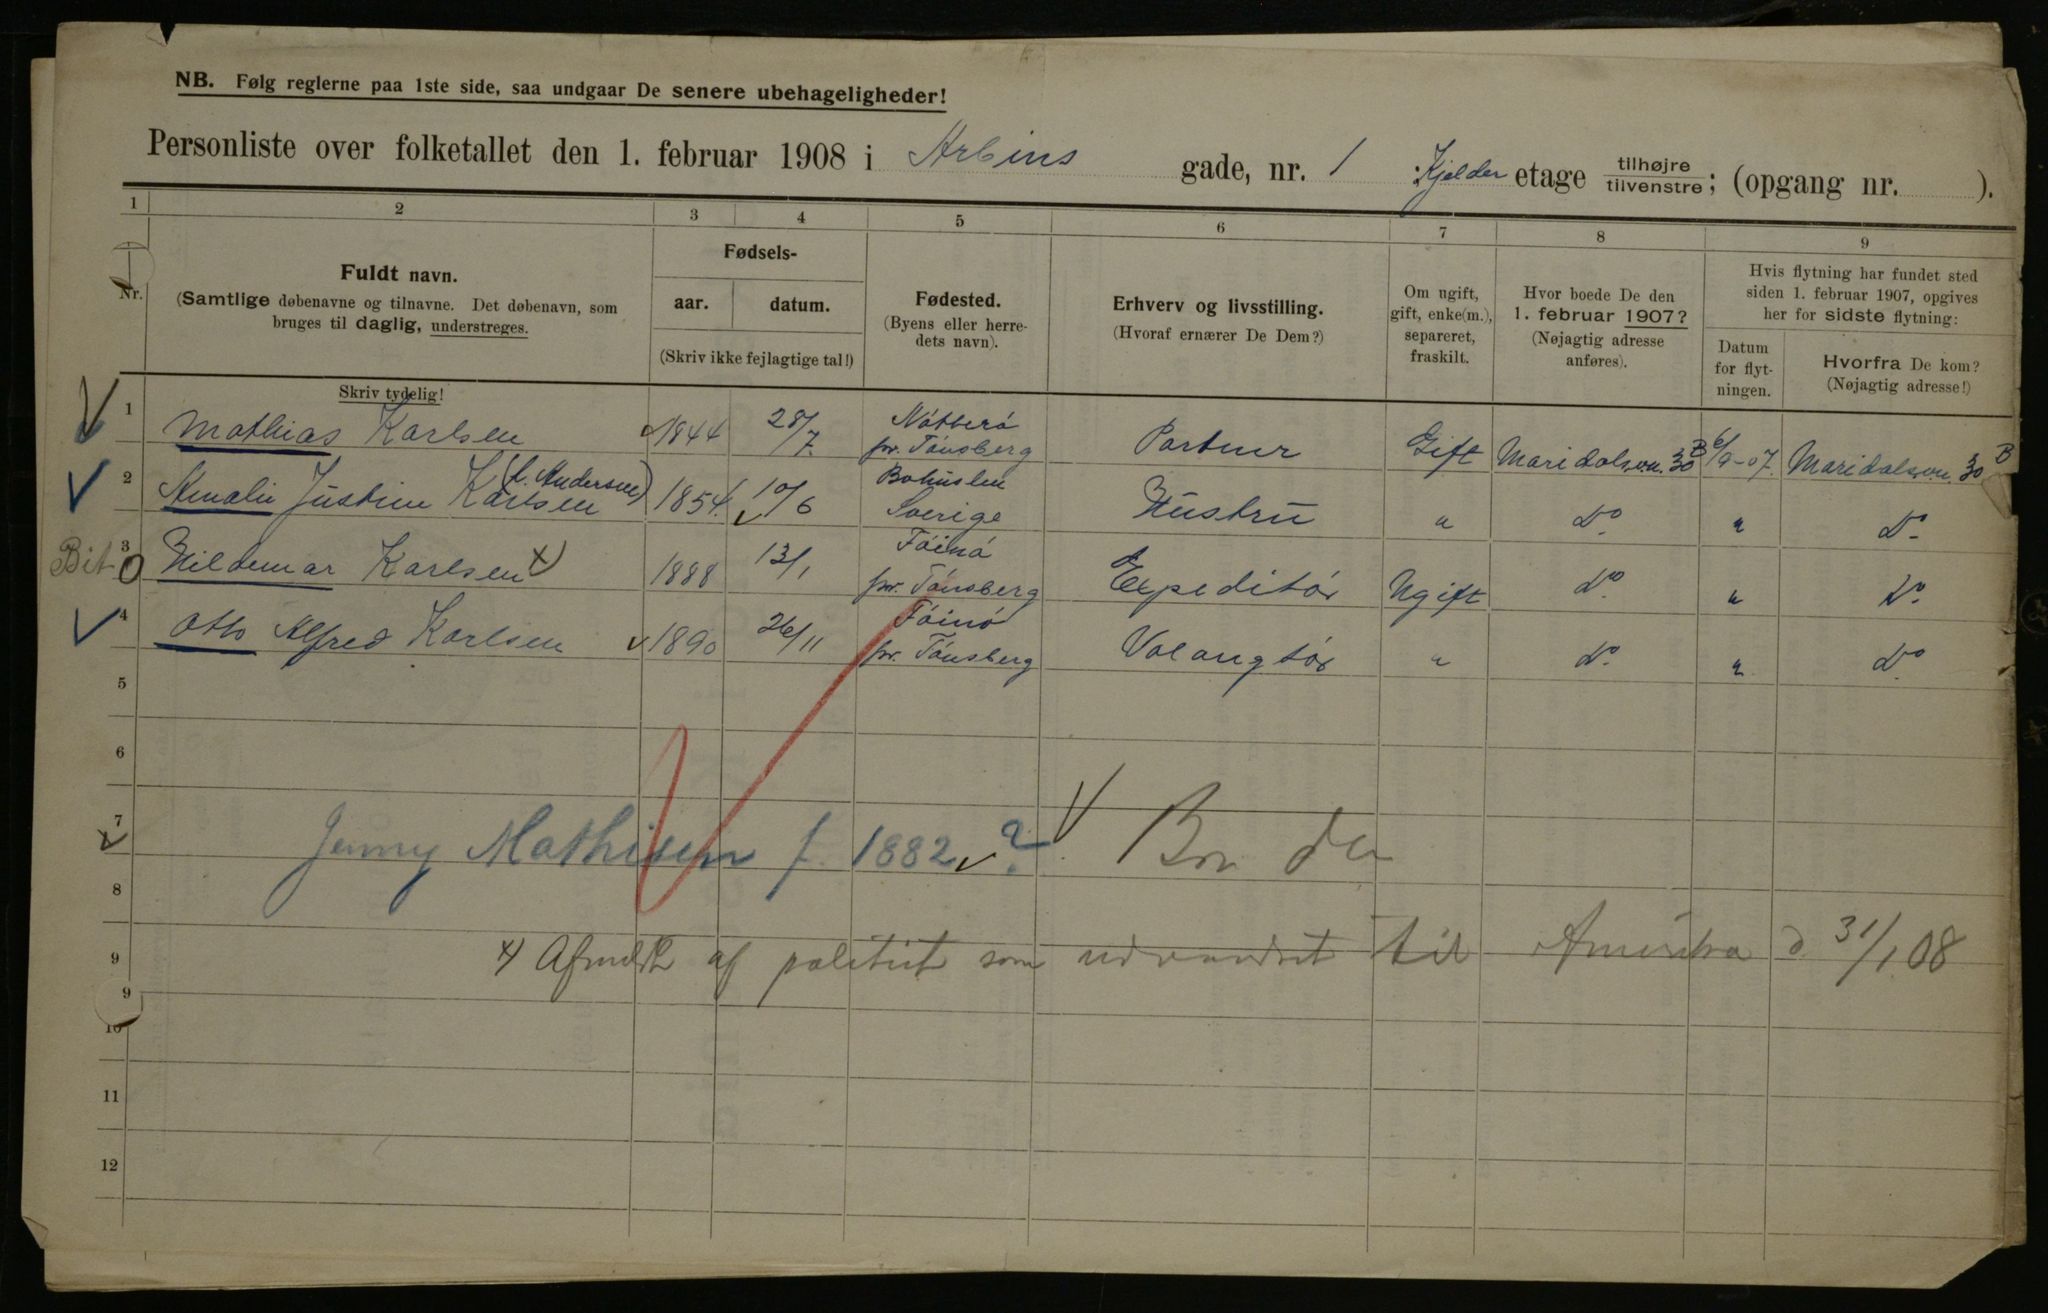 NB. Følg reglerne paa 1ste side, saa undgaar De senere ubehageligheder!
Personliste over folketallet den 1. februar 1908 i Arbins gade, nr. 1 Kjelder etage tilhøjre tilvenstre; (opgang nr. ).
1 2 3 4 5 6 7 8 9
Nr.
Fuldt navn.
(Samtlige døbenavne og tilnavne. Det døbenavn, som
bruges til daglig, understreges.
Skriv tydelig!
Fødsels-
aar. datum.
(Skriv ikke fejlagtige tal!)
Fødested.
(Byens eller herre-
dets navn).
Erhverv og livsstilling.
(Hvoraf ernærer De Dem?)
Om ugift,
gift, enke(m.),
separeret,
fraskilt.
Hvor boede De den
1. februar 1907?
(Nøjagtig adresse
anføres).
Hvis flytning har fundet sted
siden 1. februar 1907, opgives
her for sidste flytning:
Datum
for flyt-
ningen.
Hvorfra De kom?
(Nøjagtig adresse!)
1 Mathias Karlsen 1844 28/7 Nötterö pr. Tönsberg Portner Gift Maridalsvn. 30 B 6/9-07 Maridalsvn. 30 B
2 Amalie Justine Karlsen (f. Andersen) 1854 10/6 Bohuslen Sverige Hustru " Do " Do
3 Hildemar Karlsen x) 1888 13/1 Töinö pr. Tönsberg Expeditör Ugift Do " Do
4 Otto Alfred Karlsen 1890 26/11 Töinö pr. Tönsberg Volangtör " Do " Do
5
6
7 Jenny Mathisen f. 1882 ? Bor der
8
9 x) Afmeldt af politiet som udvandret til Amerika d 31/1 08
9
10
11
12